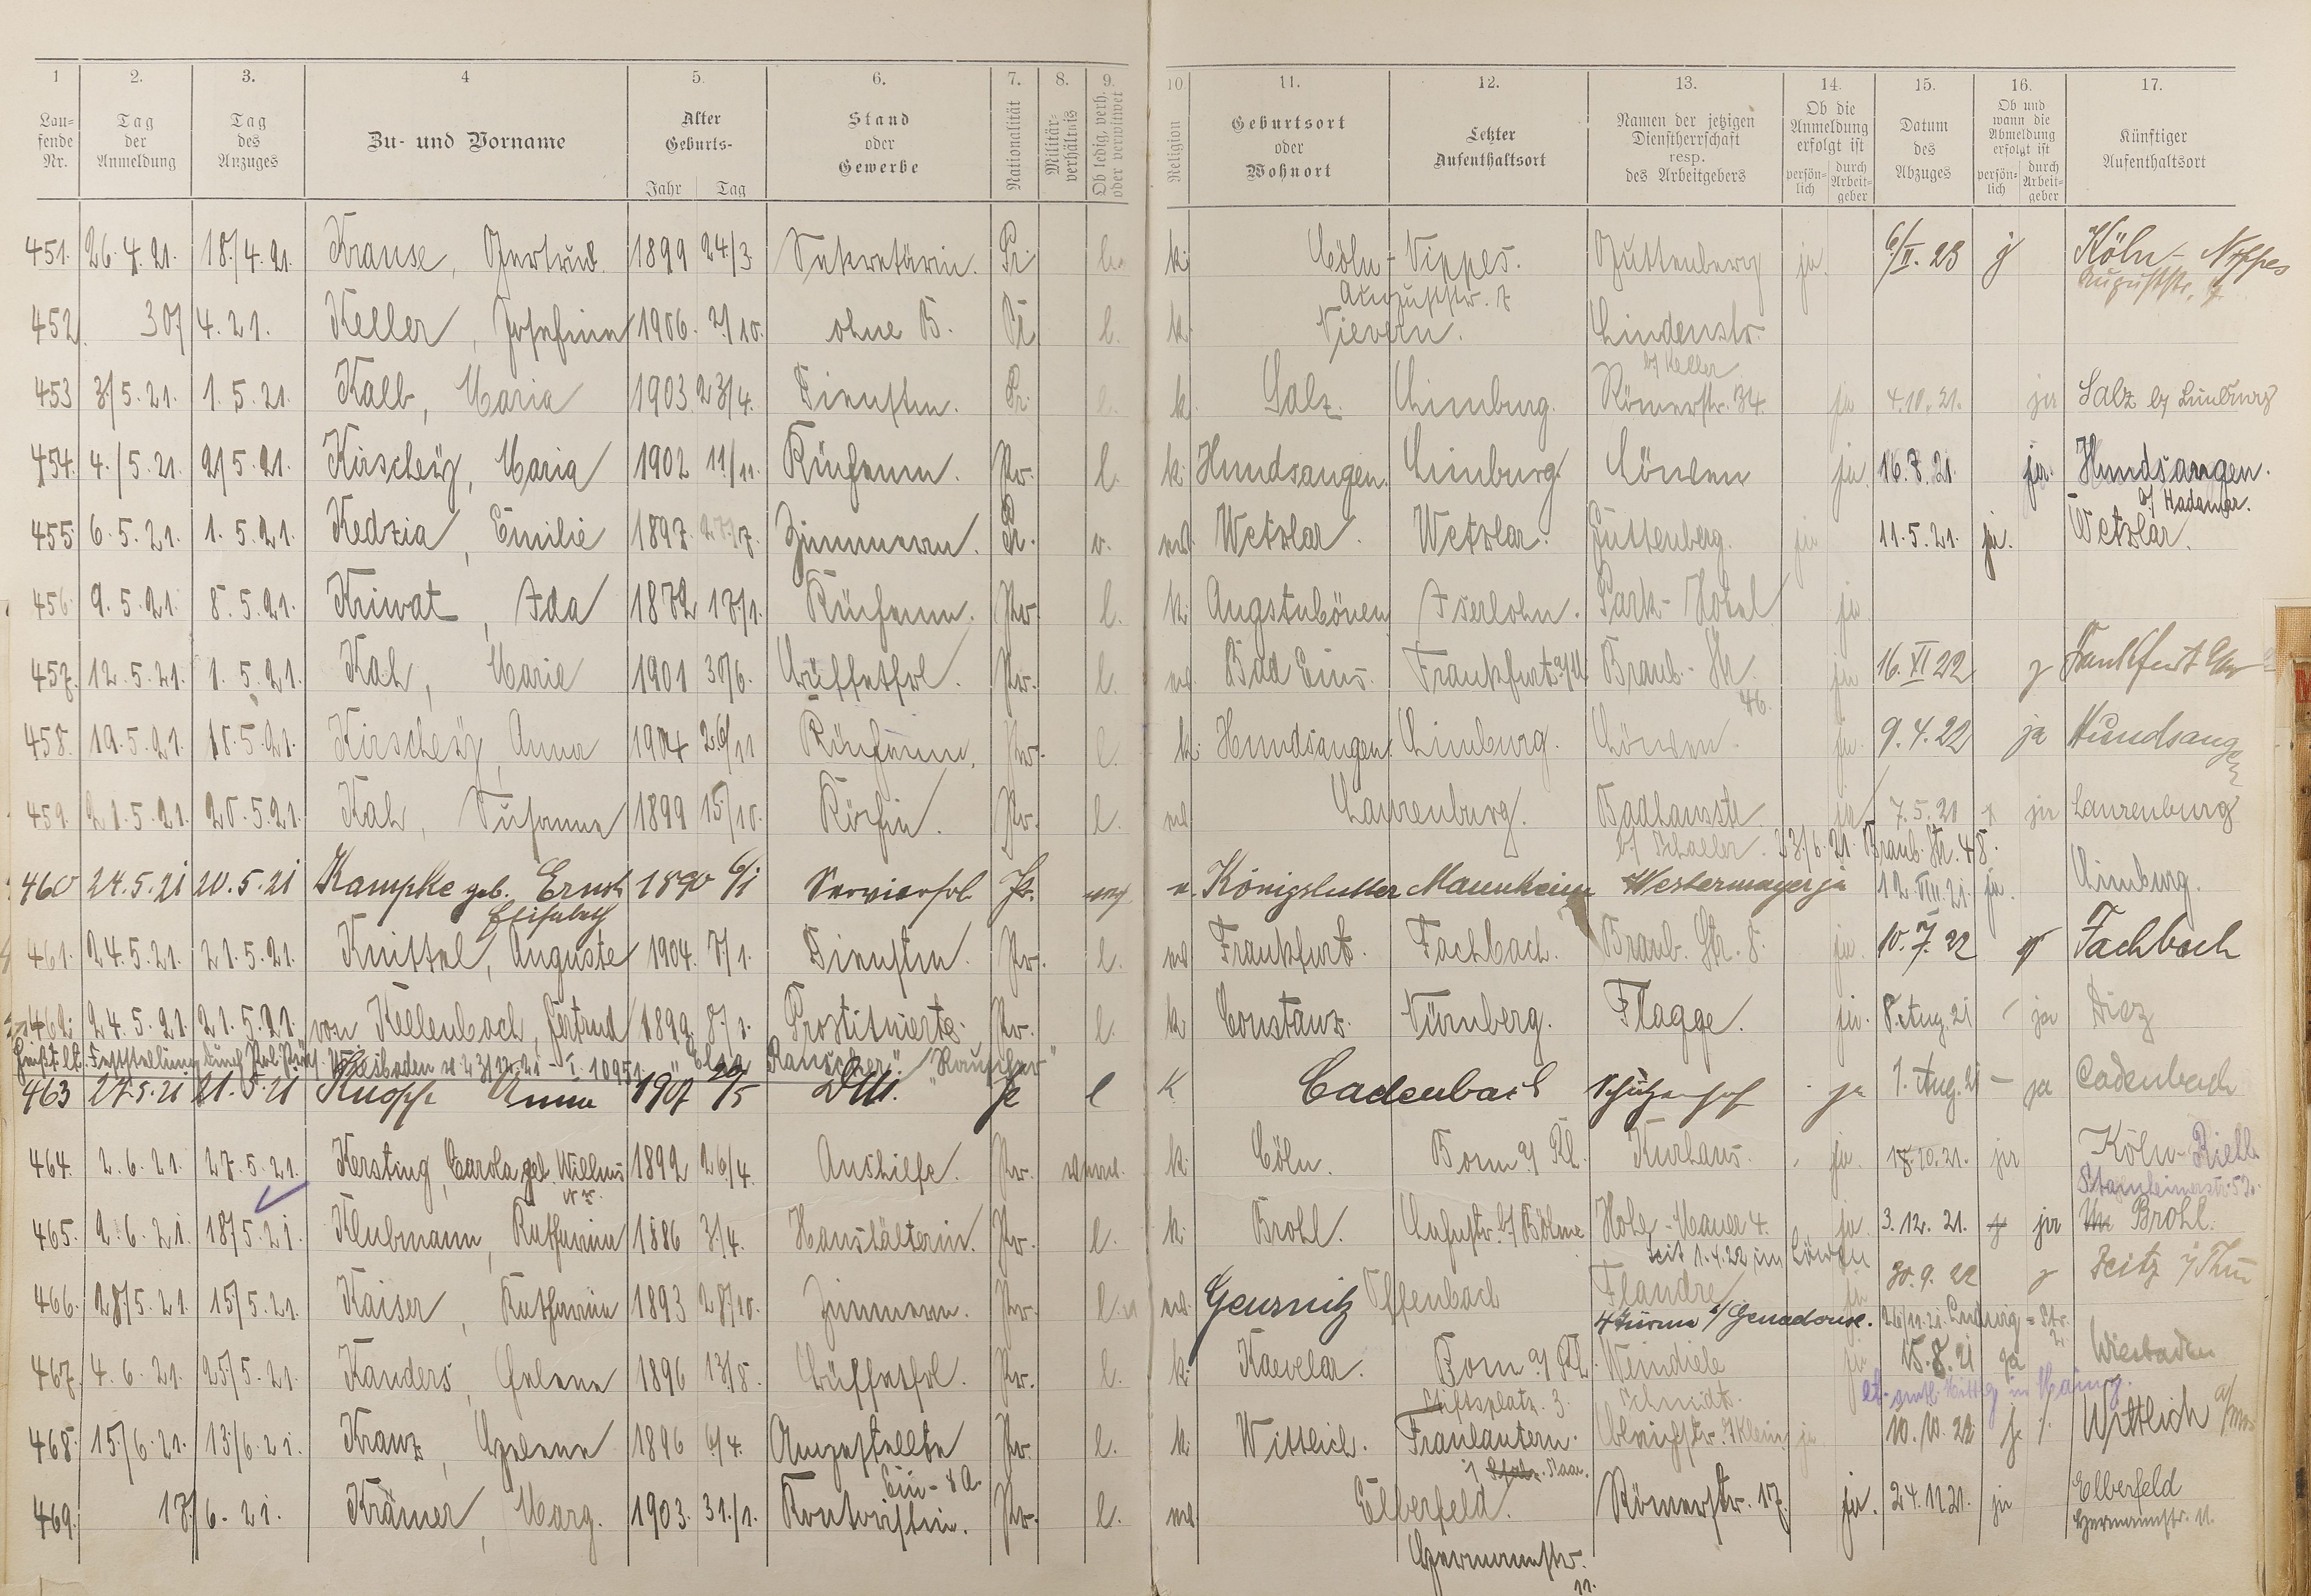 1 2. 3. 4 5. 6. 7. 8. 9. 10. 11. 12. 13. 14. 15. 16. 17.
Lau-
fende
Nr.
Tag
der
Anmeldung
Tag
des
Anzuges
Zu- und Vorname
Alter
Geburts-
Jahr Tag
Stand
oder
Gewerbe
Nationalität
Militär-
verhältnis
Ob ledig, verh.
oder verwitwet
Religion
Geburtsort
oder
Wohnort
Letzter
Aufenthaltsort
Namen der jetzigen
Dienstherrschaft
resp.
des Arbeitgebers
Ob die
Anmeldung
erfolgt ist
persön-
lich
durch
Arbeit-
geber
Datum
des
Abzuges
Ob und
wann die
Abmeldung
erfolgt ist
persön-
lich
durch
Arbeit-
geber
Künftiger
Aufenthaltsort
451. 26.4.21. 18./4.21. Krause, Gertrud. 1899 24/3. Sekretärin. Pr l. k. Cöln-Nippes. Guttenberg ja. 6/II.23 j Köln-Nippes
Auguststr. 7 Auguststr. 7
452. 30/4.21. Keller, Josefine 1906. 2/10. ohne B. Pr l. k. Nievern. Lindenstr.
b/ Keller
453 3/5.21. 1.5.21. Kalb, Maria 1903. 23/4. Dienstm. Pr. l. k. Salz. Limburg. Römerstr. 34. ja 4.10.21. ja Salz b/ Limburg
454. 4./5.21. 2/5.21. Kirschey, Maria 1902 11/11. Küchenm. Pr. l. k. Hundsangen. Limburg. Löwen ja. 16.8.21. ja. Hundsangen.
b/ Hadamar.
455 6.5.21. 1.5.21. Kedzia, Emilie 1897. 27/7. Zimmerm. Pr. v. ev. Wetzlar. Wetzlar. Guttenberg. ja 11.5.21. ja. Wetzlar.
456. 9.5.21. 8.5.21. Kriwat, Ida 1872 17/1. Küchenm. Pr l. k. Augstubönen Iserlohn. Park-Hotel ja
457. 12.5.21. 1.5.21. Kah, Marie 1901 30/6. Büffetfrl. Pr. l. ev. Bad Ems. Frankfurt a/M Braub.-Str. ja 16.XI 22 j Frankfurt
46.
458. 19.5.21. 18.5.21. Kirschey, Anna 1904 26/11 Küchenm. Pr. l. k. Hundsangen. Limburg. Löwen. ja. 9.4.22 ja Hundsangen
459. 21.5.21. 20.5.21. Kah, Susanna 1899 15/10. Köchin. Pr. l. ev. Laurenburg. Badhausstr. ja 7.5.21 ja Laurenburg
b/ Schaller. 23./6.21. Braub. Str. 48.
460 24.5.21 20.5.21 Kampke geb. Ernst 1890 6/1 Servierfrl Pr. e. Königslutter Mannheim Westermayer ja 12.VIII.21. ja. Limburg.
Elisabeth
461. 24.5.21. 21.5.21. Knittel, Auguste 1904. 7/1. Dienstm. Pr. l. ev Frankfurt. Fachbach. Braub. Str. 8. ja. 10.7.22 Fachbach
462. 24.5.21. 21.5.21. von Kellenbach, Gertrud 1899. 8/3. Prostituierte. Pr. l. k Constanz. Nürnberg. Flagge. ja. 8. Aug. 21 - ja Diez
heißt lt. Feststellung durch Pol. Präs. Wiesbaden v. 23/12.21 - I. 1095. "Elsa Rauscher". "Rauscher"
463 27.5.21 21.5.21 Knopp Anna 1907 29/5 DM. Pr l k Cadenbach Schützenhof - ja 1. Aug. 21 - ja Cadenbach
464. 2.6.21. 27.5.21. Kersting, Carola geb. Willms 1892 26/4. Aushilfe. Pr. k. Cöln. Bonn a/Rh. Kurhaus. - ja. 18.10.21. ja Köln-Riehl
Stammheimerstr. 52.
465. 2.6.21. 18/5.21. Klubmann, Katharina 1886 3/4. Haushälterin. Pr. l. k. Brohl. b/ Böhme Hohe-Mauer 4. ja 3.12.21. ja Brohl.
seit 1.4.22 im Löwen
466. 28/5.21. 15/5.21. Kaiser, Katharina 1893 28/10. Zimmerm. Pr. l. ev. Offenbach Flandre ja 30.9.22 j Zeitz i/Thür
4 Türme 26/11.21. Ludwig-Str.
467. 4.6.21. 25/5.21. Kanders, Helene 1896 13/8. Büffetfrl. Pr. l. k. Kaevelar. Bonn a/Rh. Weindiele ja 15.8.21 ja Wiesbaden
Stiftsplatz. 3. Schmidt.
468. 15/6.21. 13/6.21. Kranz, Helene 1896 6/4. Angestellte Pr. l. k. Wittlich. Fraulautern. 7 Klein ja 10.10.22 j Wittlich
Ein-&A. Saar.
469. 17/6.21. Krämer, Marg. 1903. 31/1. Kontoristin. Pr. l. ev. Elberfeld. Römerstr. 17. ja. 24.11.21. ja Elberfeld
Hermannstr. Hermannstr. 11.
11.